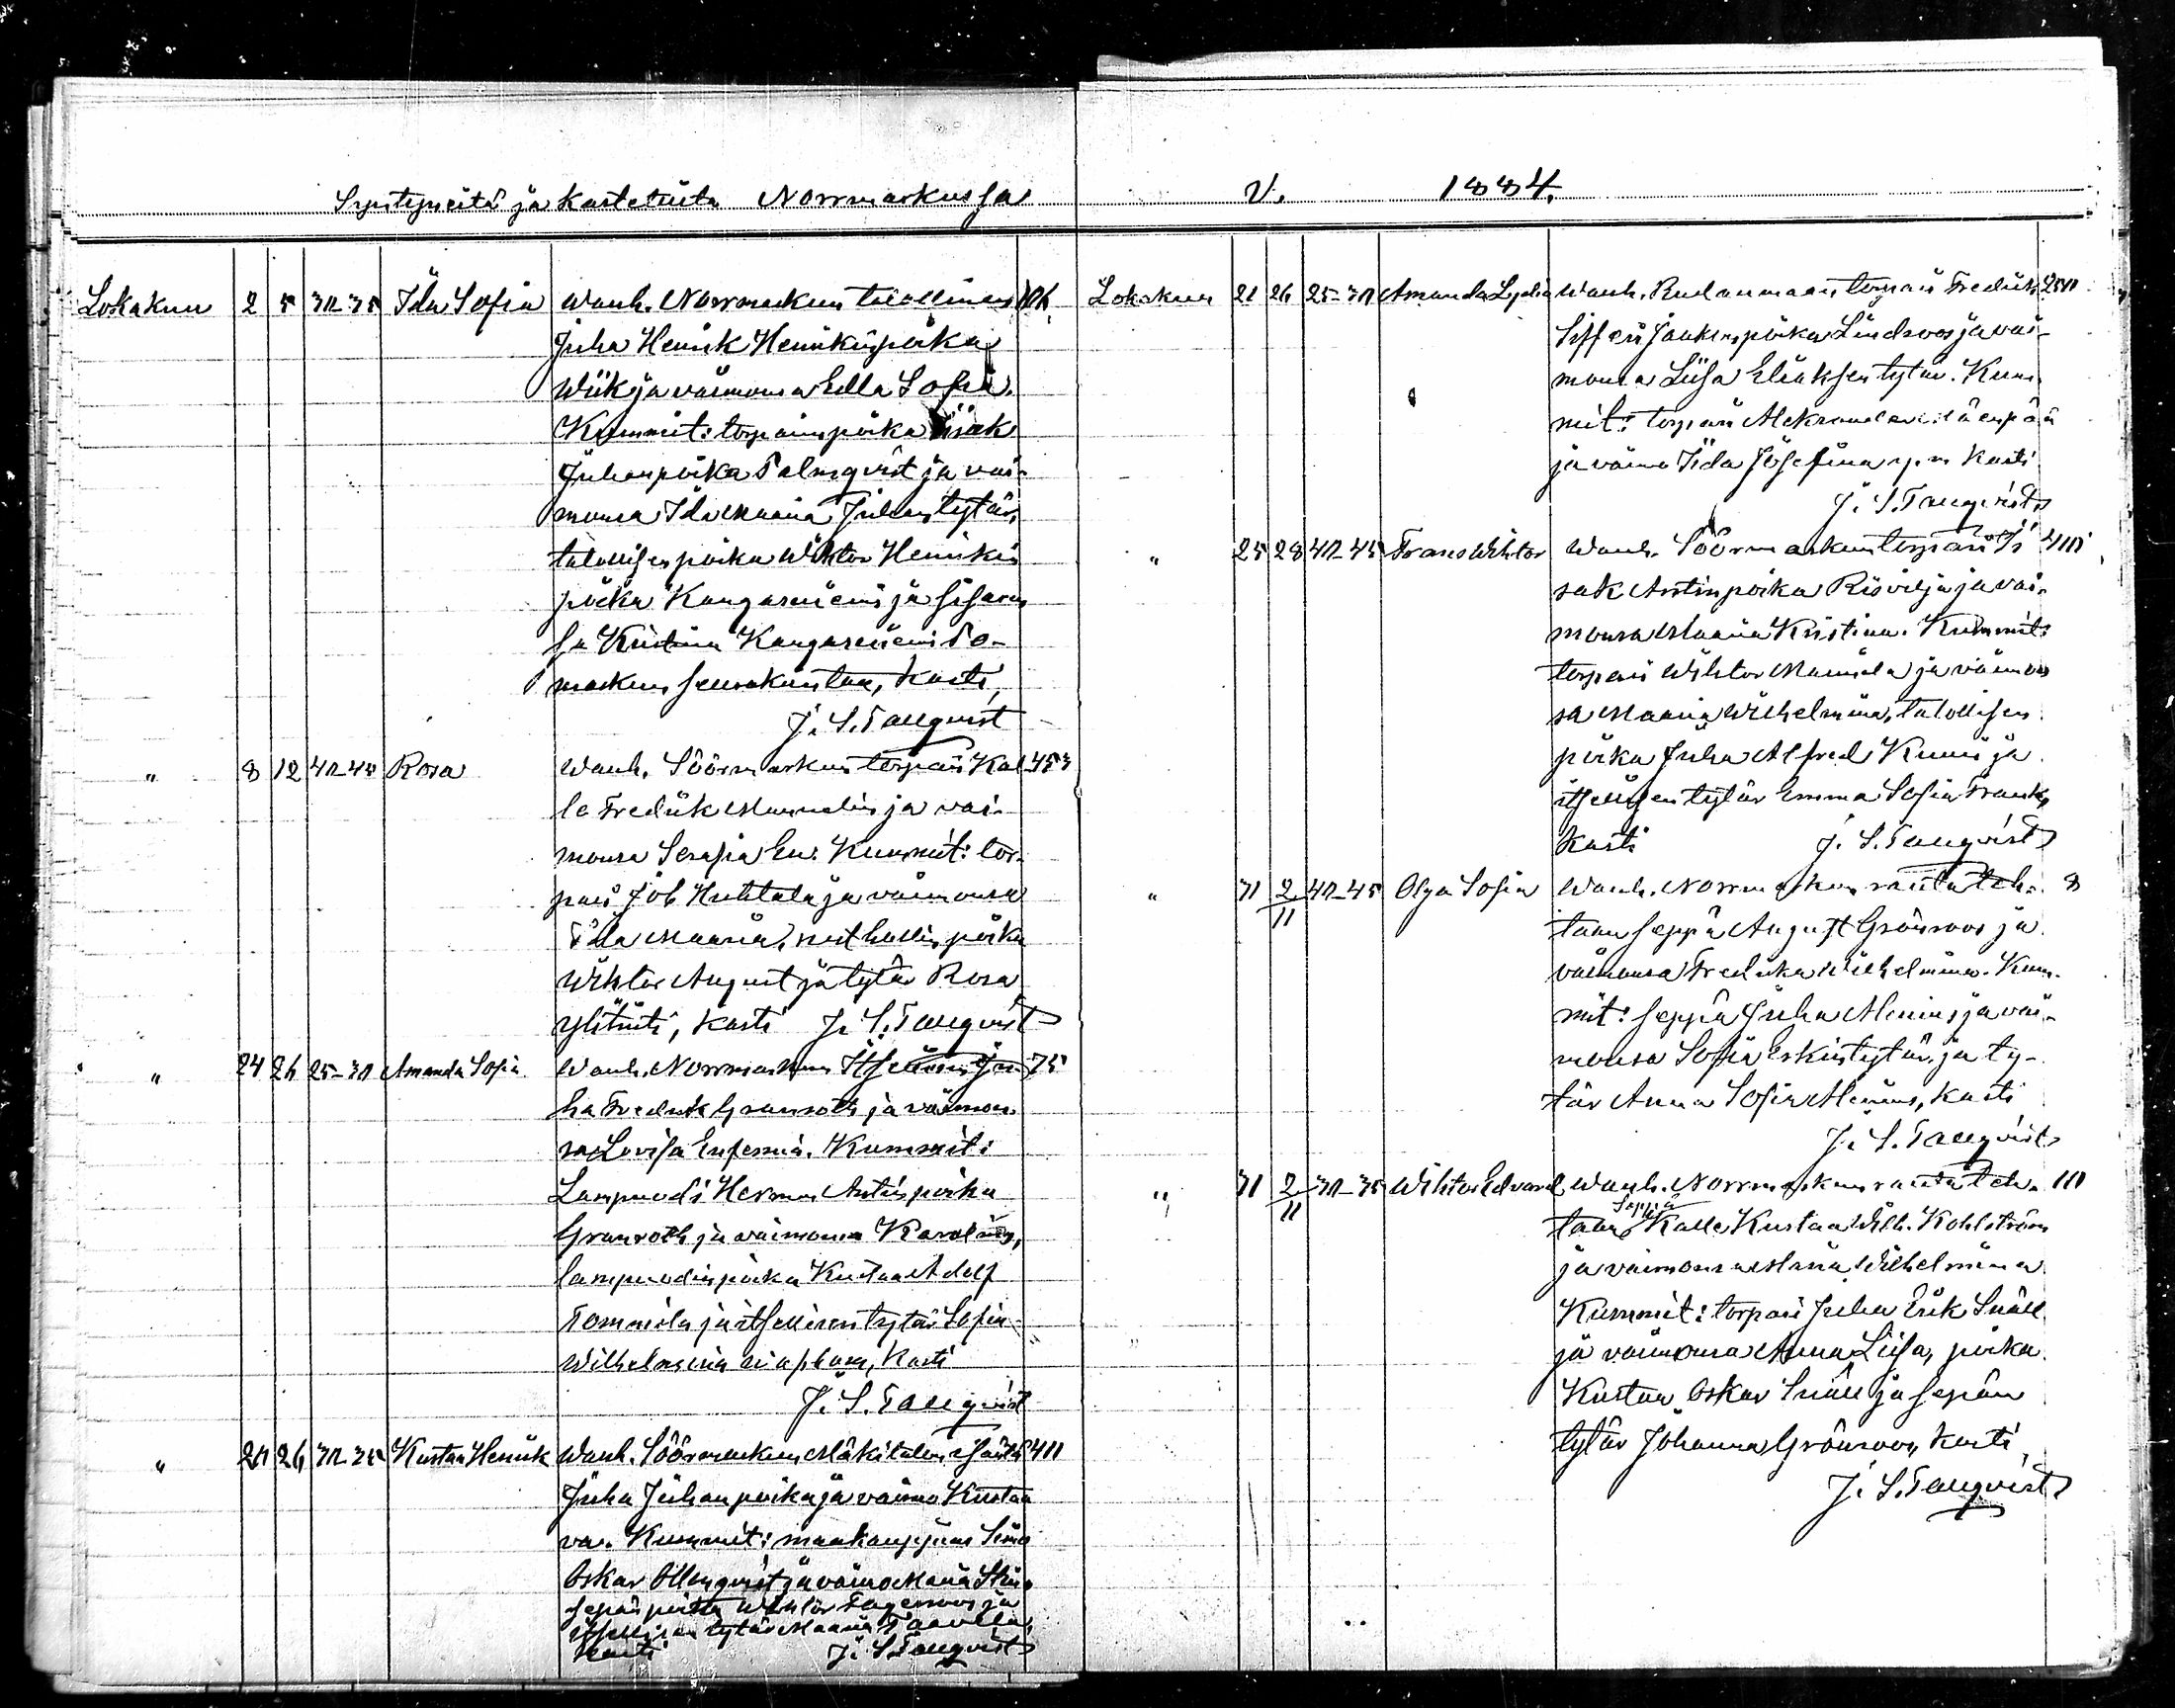 Syntyneitä ja kastetuita Norrmarkussa
V. 1884.
Lokakuu 2 5 30-35 Ida Sofia Wanh. Norrmarkun talollinen 106
Juha Henrik Henrikinpoika
Wiik ja vaimonsa Ulla Sofia.
Kummit: torparinpoika Iisak
Juhanpoika Palmqvist ja vai-
monsa Ida Maria Juhantytär,
talollisen poika Wihtor Henrikin
poika Kangasniemi ja sisaren
sa Kristina Kangasniemi Po-
markun seurakuntaa, kasti
J. S. Tallqvist
" 8 12 40-45 Rosa Wanh. Söörmarkun torpari Kal 453
le Fredrik Mannelin ja vai-
monsa Serafia Ev. Kummit: tor-
pari Job Huhtala ja vaimonsa
Ida Maria, poika
Wihtor August ja tytär Rosa
Ylituti, kasti J. S. Tallqvist
" 24 26 25-30 Amanda Sofia Wanh. Norrmarkun Itsellinen Ju- 75
ha Fredrik Granroth ja vaimon-
sa Lovisa Eufemia. Kummit:
Lampuodi Herman Antinpoika
Granroth ja vaimonsa Karolina,
lampuodinpoika Kustaa Adolf
Tommila ja itsellisen tytär Sofia
Wilhelmina kasti
J. S. Tallqvist
" 20 26 30-35 Kustaa Henrik Wanh. Söörmarkun Mäkitalon isäntä 400
Juha Juhanpoika ja vaimo Kustaa
va. Kummit: maakauppias Simo
Oskar Ollonqvist ja vaimo Maria Stiina
sepän poika Wihtor Fagerroos ja
itsellisen tytär Maria Taavela,
kasti J. S. Tallqvist
Lokakuu 21 26 25-30 Amanda Lydia Wanh. Rudanmaan torpari Fredrik 250
Siffer Jaakonpoika Lindroos ja vai-
monsa Liisa Eliaksentytär. Kum-
mit: torpari Aleksander
ja vaimo Iida Josefina y.m. kasti
J. S. Tallqvist
" 25 28 40-45 Frans Wihtor Wanh. Söörmarkun torpari Ii- 400
sak Antinpoika Risvilja ja vai-
monsa Maria Kristina. Kummit:
torpari Wihtor Mannila ja vaimon
sa Maria Wilhelmina, talollisen
poika Juha Alfred Kuuni ja
itsellisen tytär Emma Sofia Frank,
kasti J. S. Tallqvist
" 31 2/11 40-45 Olga Sofia Wanh. Norrmarkun rautateh- 8
taan seppä August Grönroos ja
vaimonsa Fredrika Wilhelmina. Kum-
mit: seppä Juha Alenius ja vai-
monsa Sofia Eskintytär, ja ty-
tär Anna Sofia Alenius, kasti
J. S. Tallqvist
" 31 2/11 30-35 Wihtor Edvard Wanh. Norrmarkun rautateh- 111
taan seppä Kalle Kustaa Wilh. Kohlström
ja vaimonsa Miina Wilhelmiina
Kummit: torpari Juha Erik Snäll
ja vaimonsa Anna Liisa, poika
Kustaa Oskar Snäll ja sepän
tytär Johanna Grönroos, kasti
J. S. Tallqvist